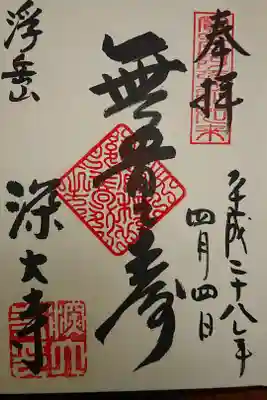 奉拝
平成二十八年
四月四日
無量寿
浮岳山
深大寺